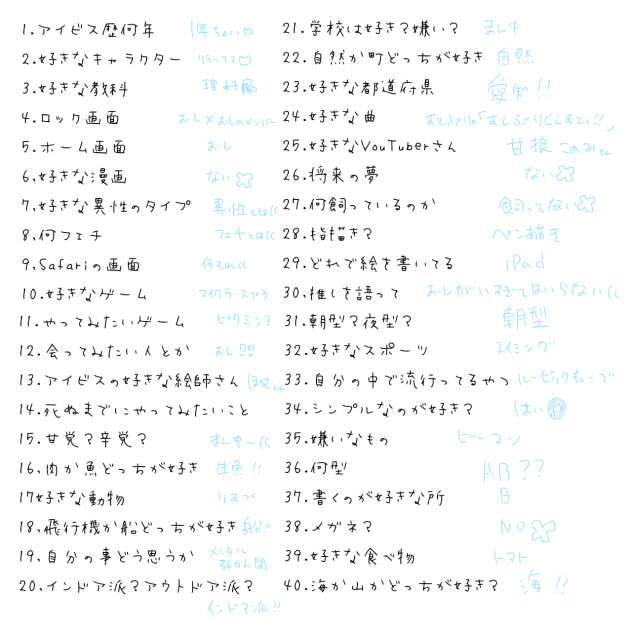 1.アイビス歴何年 1年ちょい
2.好きなキャラクター リラックマ
3.好きな教科 理科
4.ロック画面 おし×おしのメンバー
5.ホーム画面 おし
6.好きな漫画 ない
7.好きな異性のタイプ 異性とは((
8.何フェチ フェチとは((
9.Safariの画面 何それ((
10.好きなゲーム マイクラ・スプラ
11.やってみたいゲーム ピクミン3
12.会ってみたい人とか おし
13.アイビスの好きな絵師さん
14.死ぬまでにやってみたいこと
15.甘党?辛党? まん中〜((
16.肉か魚どっちが好き 生魚!!
17好きな動物 りす
18.飛行機か船どっちが好き 船!!
19.自分の事どう思うか メンタル
弱な人間
20.インドア派?アウトドア派?
インドア派!!
21.学校は好き?嫌い? まん中
22.自然か町どっちが好き 自然
23.好きな都道府県 愛知!!
24.好きな曲
25.好きなYouTuberさん 甘狼このみ
26.将来の夢 ない
27.何飼っているのか 飼ってない
28.指描き? ペン描き
29.どれで絵を書いてる iPad
30.推しを語って おしがいすぎてはいらない((
31.朝型?夜型? 朝型
32.好きなスポーツ スイミング
33.自分の中で流行ってるやつ ルービックキューブ
34.シンプルなのが好き? はい
35.嫌いなもの ピーマン
36.何型 AB??
37.書くのが好きな所 目
38.メガネ? NO
39.好きな食べ物 トマト
40.海か山かどっちが好き? 海!!